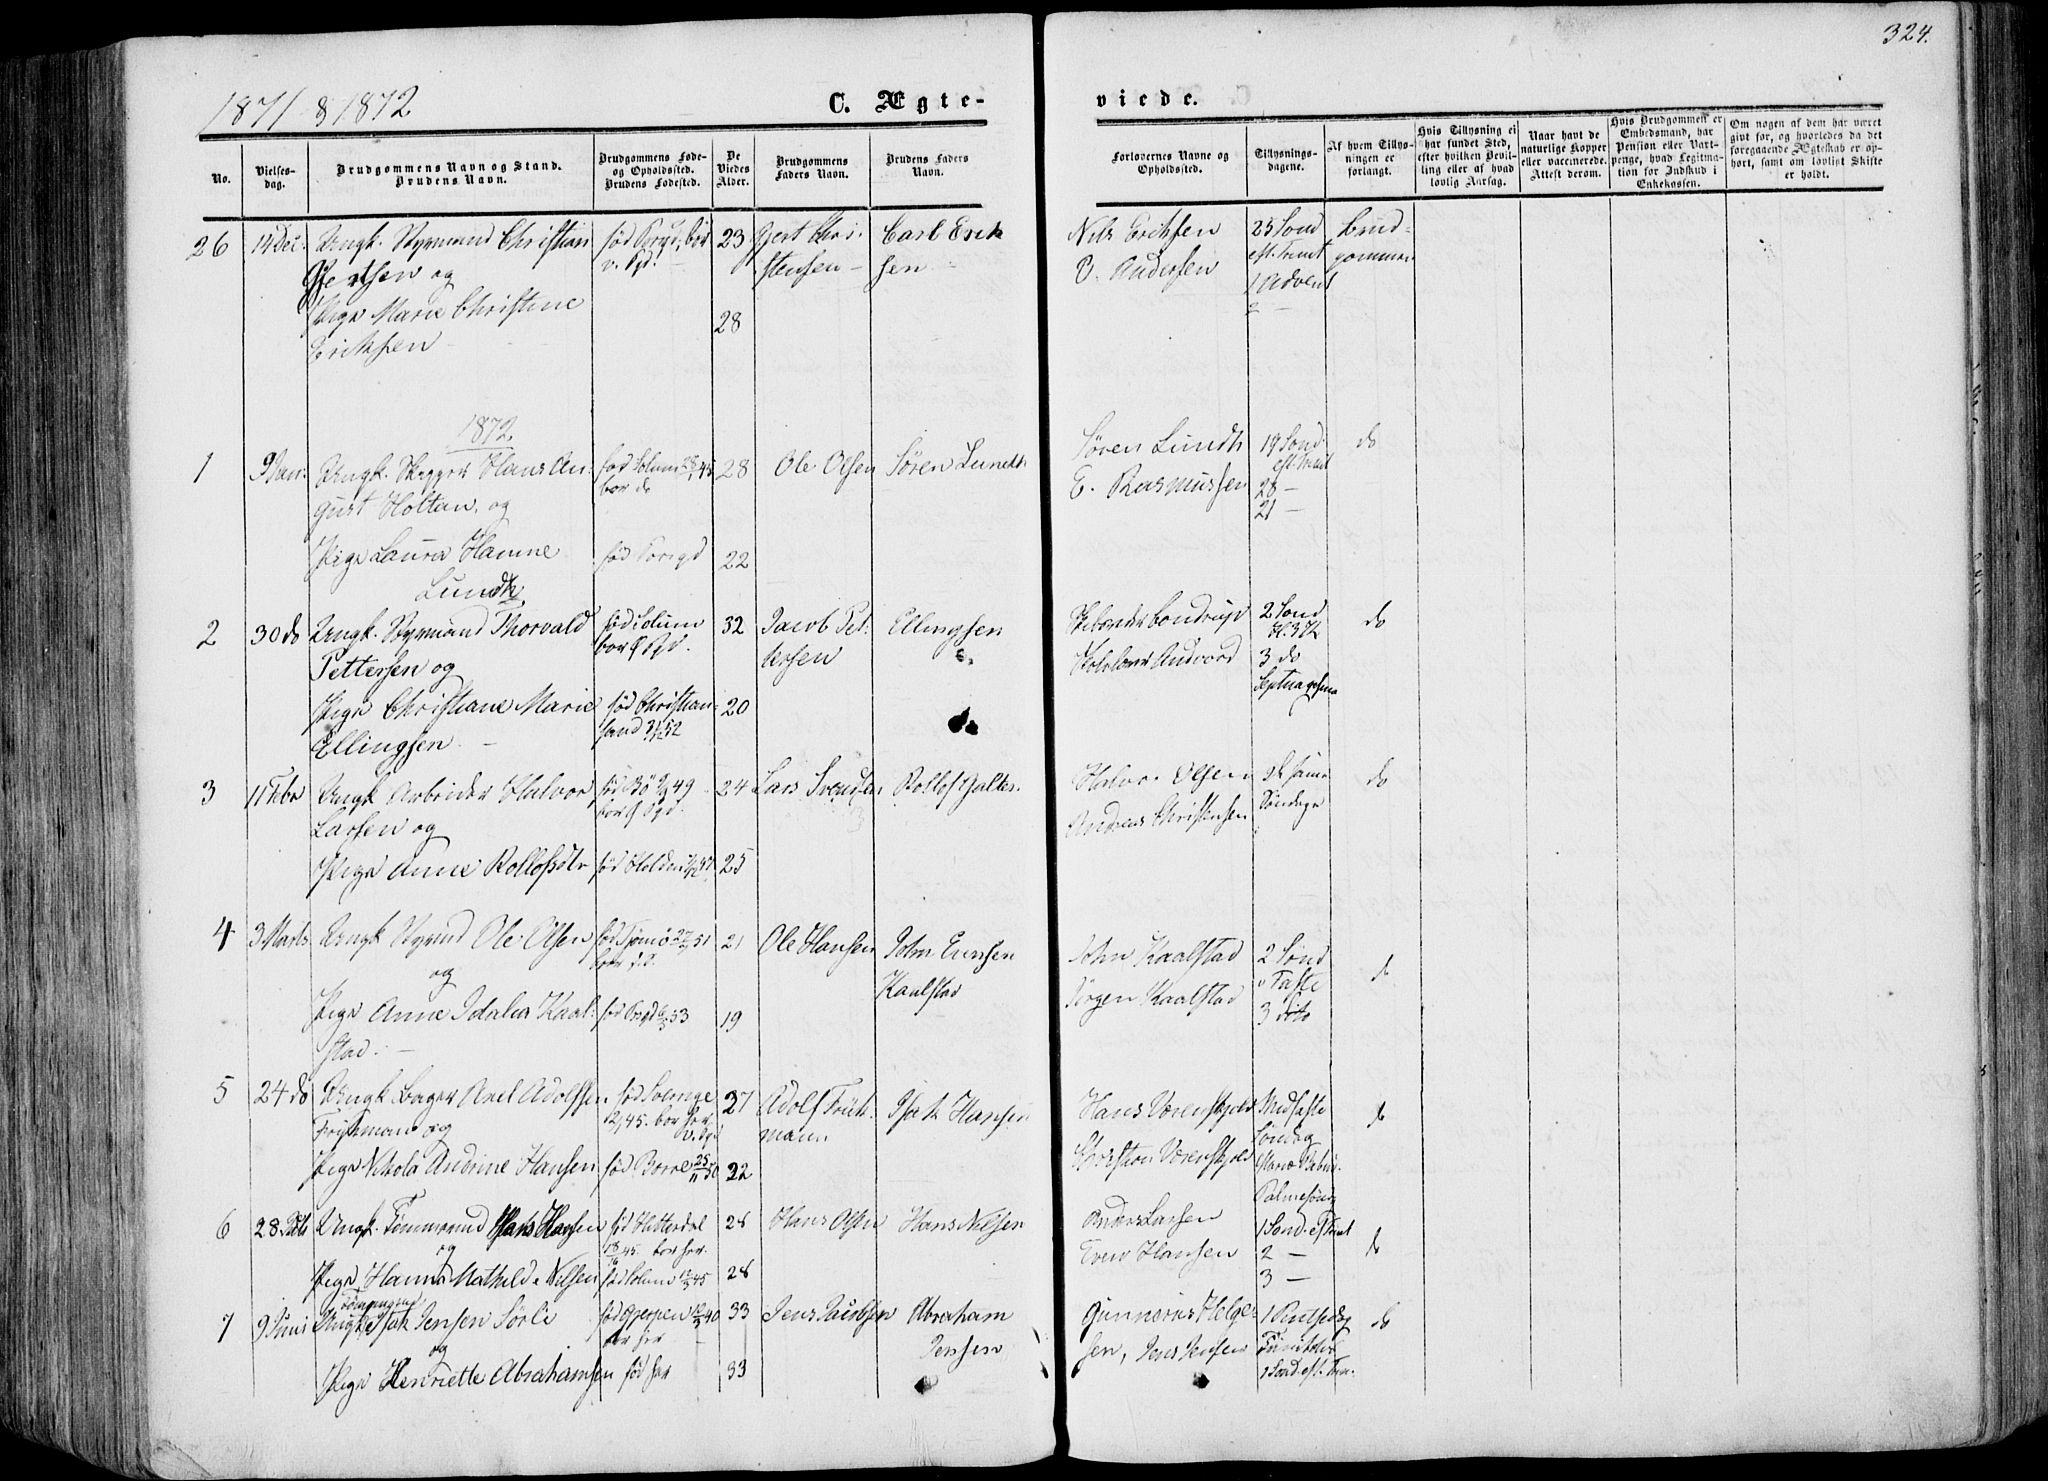 324.
1871 & 1872
C. Ægte-
viede.
No.
Vielses-
dag.
Brudgommens Navn og Stand.
Brudens Navn.
Brudgommens Føde-
og Opholdssted.
Brudens Fødested.
De
Viedes
Alder.
Brudgommens
Faders Navn.
Brudens Faders
Navn.
Forlovernes Navne og
Opholdssted.
Tillysnings-
dagene.
Af hvem Tillys-
ningen er
forlangt.
Hvis Tillysning ei
har fundet Sted,
efter hvilken Bevil-
ling eller af hvad
lovlig Aarsag.
Naar havt de
naturlige Kopper
eller vaccinerede.
Attest derom.
Hvis Brudgommen er
Embedsmand, har
Pension eller Vart-
penge, hvad Legitima-
tion for Indskud i
Enkekassen.
Om nogen af dem har været
givt før, og hvorledes da det
foregaaende Ægteskab er op-
hørt, samt om lovligt Skifte
er holdt.
26 14 Dec. Ungk. Styrmand Christian
Gjertsen og
Pige Marie Christine
Eriksen
født Porsgd, bor
v. Pgd.
23
28
Gjert Chri-
stensen
Carl Erik
sen
Nils Eriksen
O. Andersen
25 Sønd
eft. Trinit
1 Advent
2 —
Brud-
gommen
1872
1 9 Jan: Ungk. Skipper Hans Au-
gust Holtan, og
Pige Laura Hanne
Lundh
bor do
født Porsgd
28
22
Ole Olsen
Søren Lundh
Søren Lundh
E. Rasmussen
19 Sønd
eft. Trinit
20 —
21 —
do
2 30 do Ungk. Styrmand Thorvald
Pettersen og
Pige Christiane Marie
Ellingsen
født Solum
bor Ø Pgd.
født Christian-
sand
32
20
Jacob Pet-
tersen
Ellingsen
2 Sønd
3 do
Septuagesima
do
3 11 Febr Ungk Arbeider Halvor
Larsen og
Pige Anne Rollofsdtr
født Bø
bor Ø Pgd.
født Holden
24
25
Lars Svendsen
Rollof
Halvor Olsen
Andreas Christensen
de samme
Søndage
do
4 3 Marts Ungk Styrmd Ole Olsen
og
Pige Anne Idalia Kaal-
stad.
født Tjømø
født Prsgd
21
19
Ole Hansen
John
Kaalstad
John Kaalstad
Jørgen Kaalstad
2 Sønd
i Faste
3 dito
do
5 24 do Ungk Bager Axel Adolfsen
og
Pige Nikola Andrine Hansen
født Sverige
bor her
v. Pgd
født Borre 25/11 50
27
22
Adolf
mann
Isak Hansen
Hans Værenskjold
Værenskjold
Midfaste
Søndag
Mariæ Bebud.
Palmesønd
do
6 28 Ungk. Tømmermd Hans Hansen
og
Pige Hanna Mathilde Nilsen
født Hitterdal
bor her.
født Solum
28
28
Hans Olsen
Hans Nilsen
Anders Larsen
Even Hansen
1 Sønd. eft
2 —
3 —
do
7 9 Juni Ungk Isak Jensen Sørli
og
Pige Henriette Abrahamsen
født Gjerpen
bor her
født her
33
33
Jens Jacobsen
Abraham
Jensen
Gunnerus Helge-
sen, Jens Jensen
1 Pintsedag
Trinitatis
1 Sønd. eft. Trin.
do